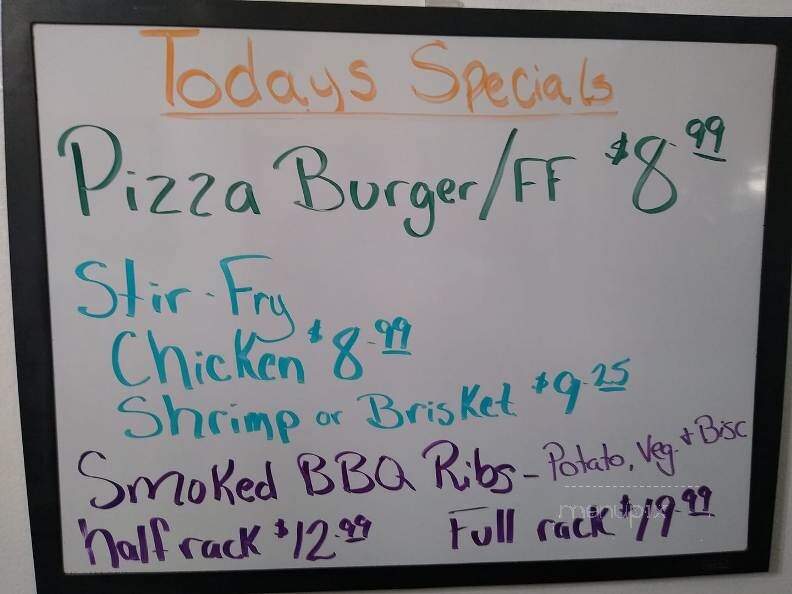 Todays Specials
Pizza Burger/FF $8.99
Stir-Fry
Chicken $8.99
Shrimp or Brisket $9.25
Smoked BBQ Ribs - Potato, Veg. + Bisc
half rack $12.99 Full rack $19.99
menupix